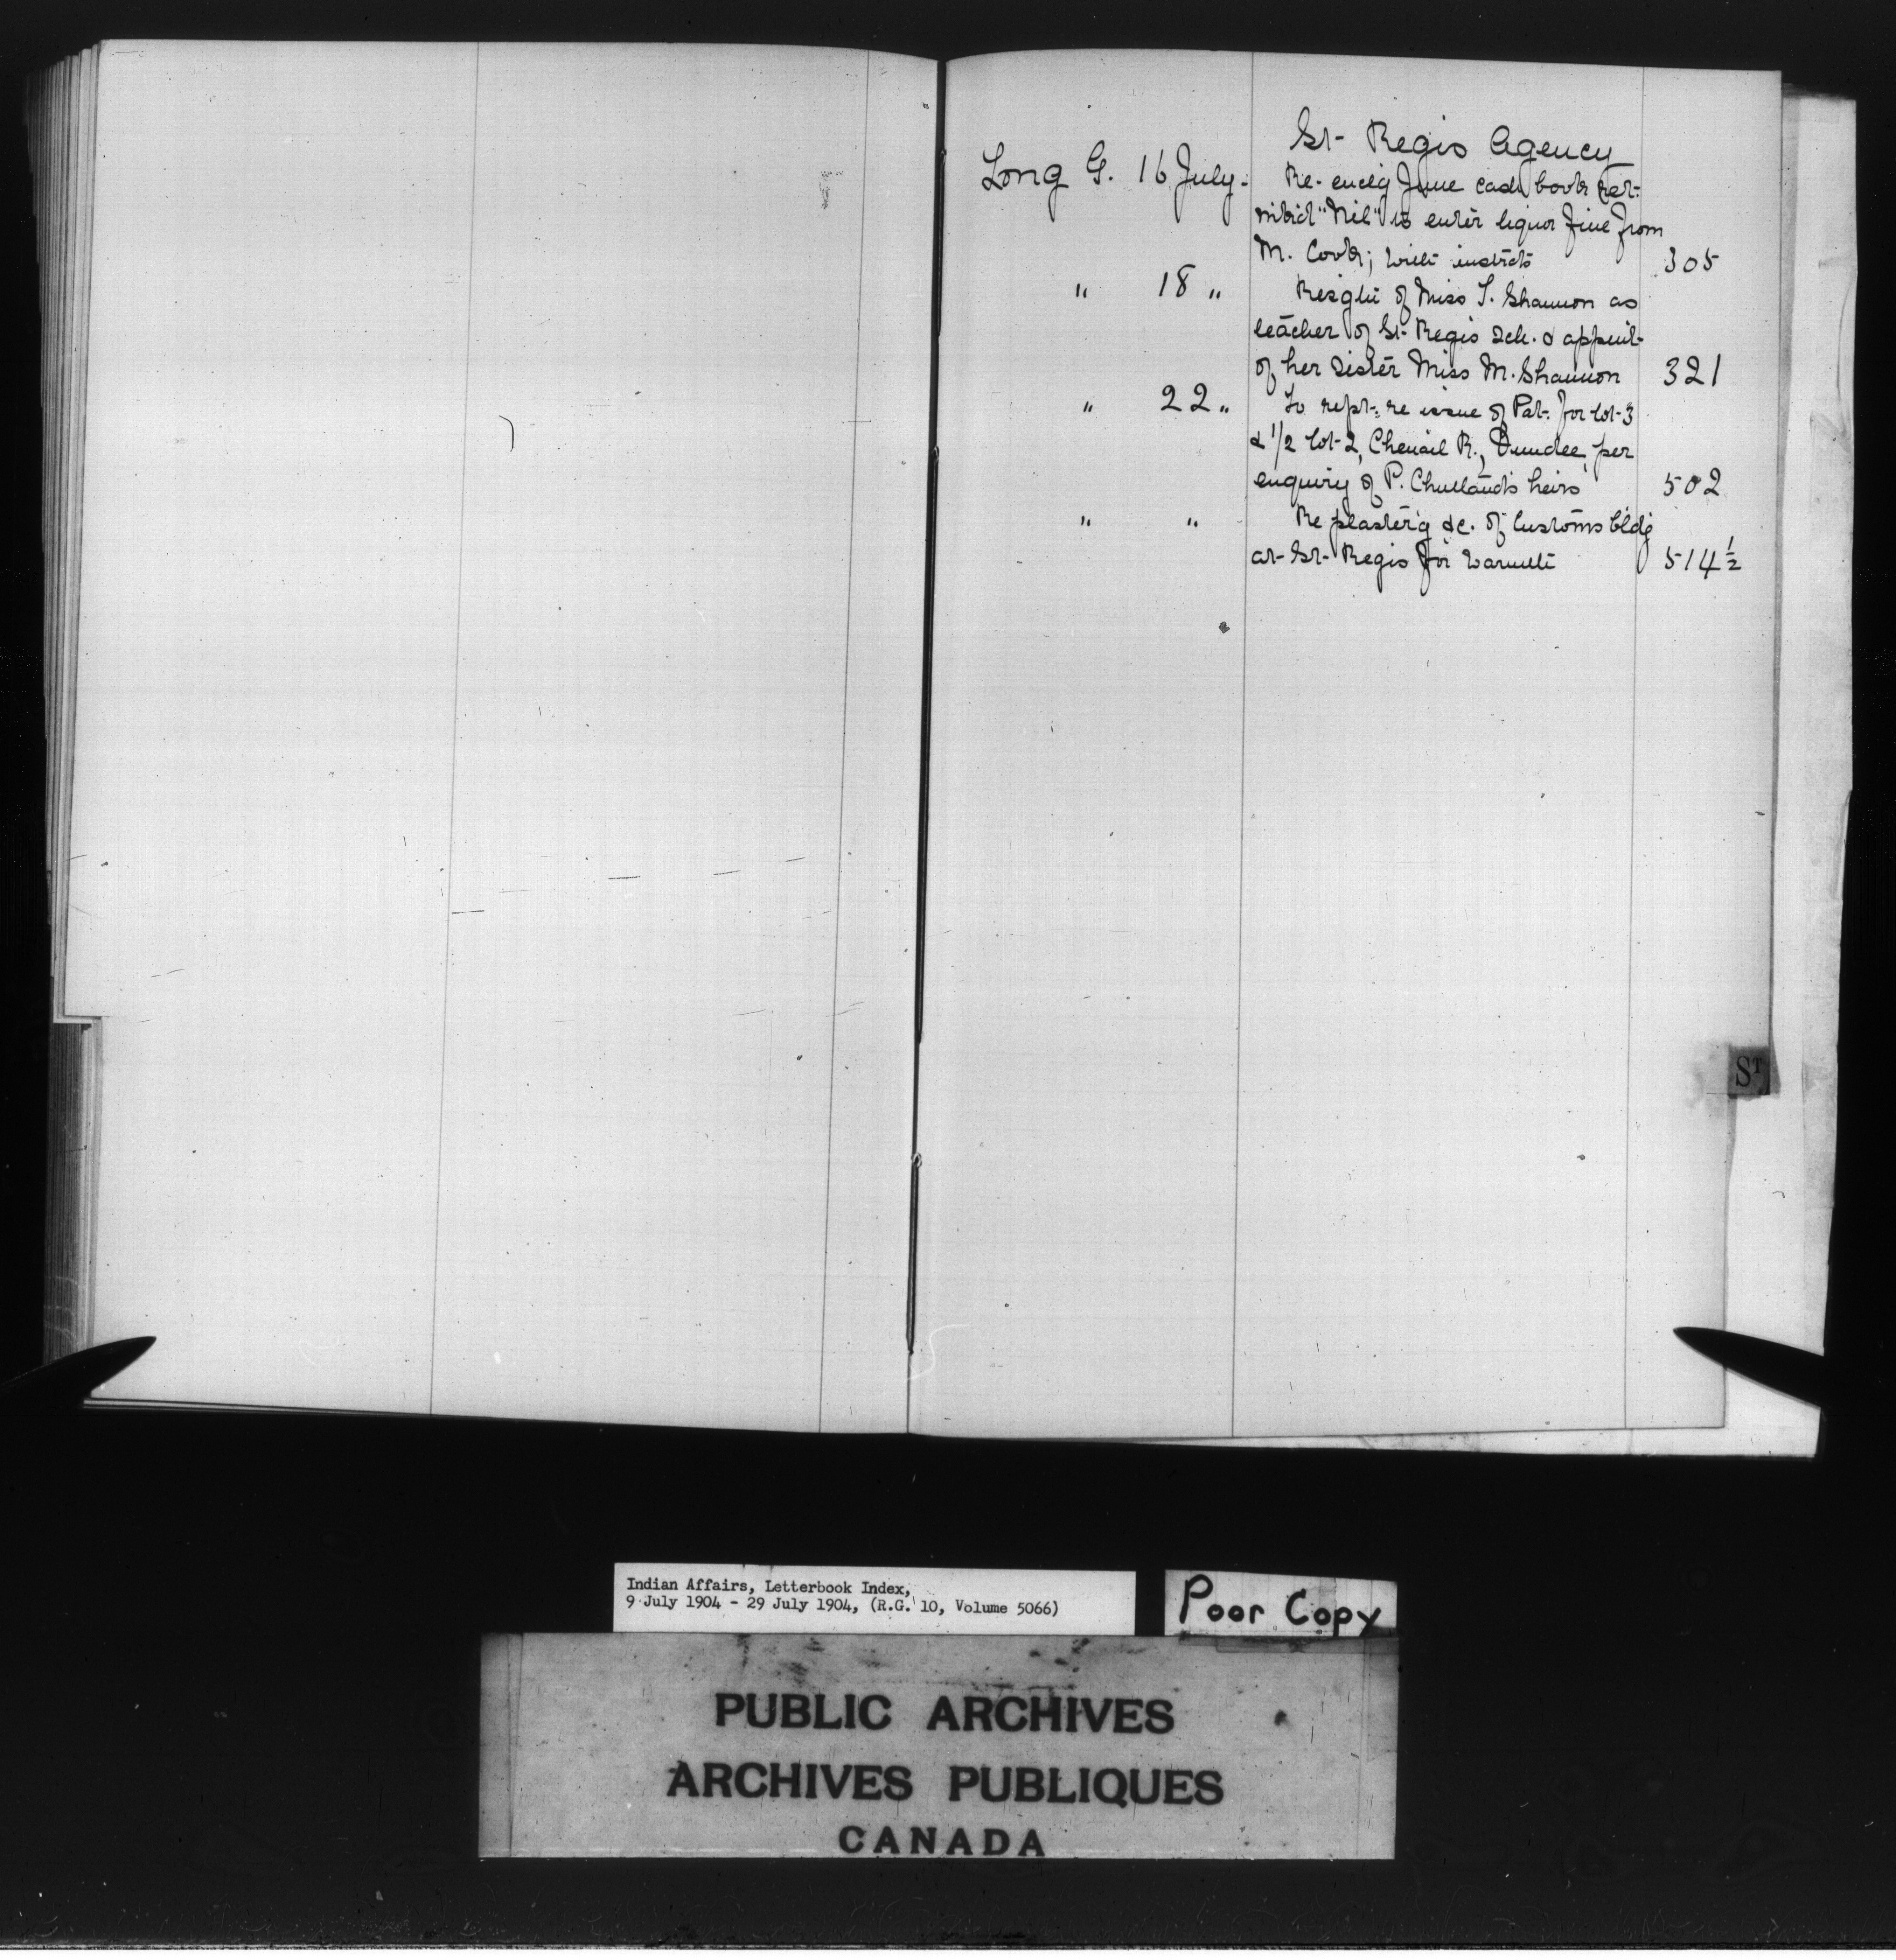 St- Regis Agency
Long G. 16 July. Re- encl'g June cash book ret-
m'k'd "Nil" to enter liquor fine from
M. Cook; with instr'cts 305
" 18 " Resg'tn of Miss T. Shannon as
teacher of St- Regis Sch. & appmt-
of her sister Miss M. Shannon 321
" 22 " To rept- re issue of Pat- for lot-3
& 1/2 lot-2, Chenail R., Dundee, per
enquiry of P. heirs 502
" " Re plaster'g &c. of Customs bldg
at- St- Regis for warmth 514 1/2
ST
Indian Affairs, Letterbook Index,
9 July 1904 - 29 July 1904, (R.G. 10, Volume 5066)
Poor Copy
PUBLIC ARCHIVES
ARCHIVES PUBLIQUES
CANADA